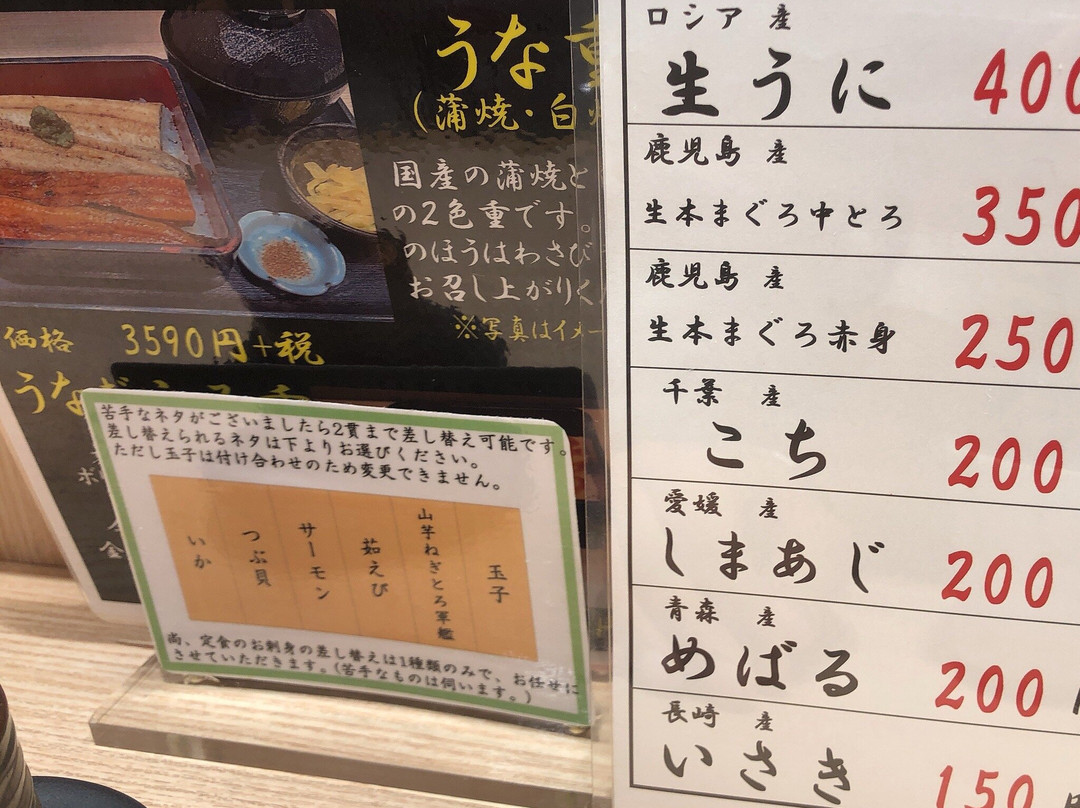 うな重
(蒲焼・白
国産の蒲焼と
の2色重です。
のほうはわさび
お召し上がりく
※写真はイメー
価格 3590円+税
苦手なネタがございましたら2貫まで差し替え可能です。
差し替えられるネタは下よりお選びください。
ただし玉子は付け合わせのため変更できません。
玉子
山芋ねぎとろ軍艦
茹えび
サーモン
つぶ貝
いか
尚、定食のお刺身の差し替えは1種類のみで、お任せに
させていただきます。(苦手なものは伺います。)
ロシア 産
生うに 400
鹿児島 産
生本まぐろ中とろ 350
鹿児島 産
生本まぐろ赤身 250
千葉 産
こち 200
愛媛 産
しまあじ 200
青森 産
めばる 200
長崎 産
いさき 150